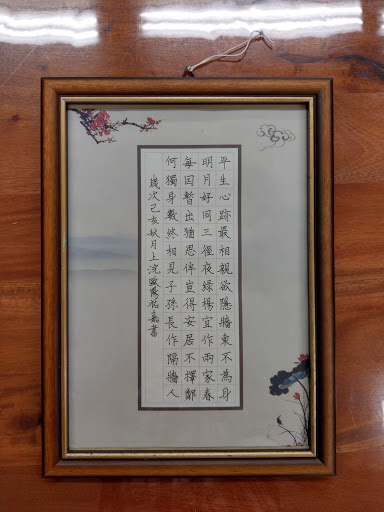 平生心跡最相親欲隱牆東不為身
明月好同三徑夜綠楊宜作兩家春
每因暫出猶思伴豈得安居不擇鄰
何獨身數終相見子孫長作隔牆人
歲次己亥秋月上浣歐陽書